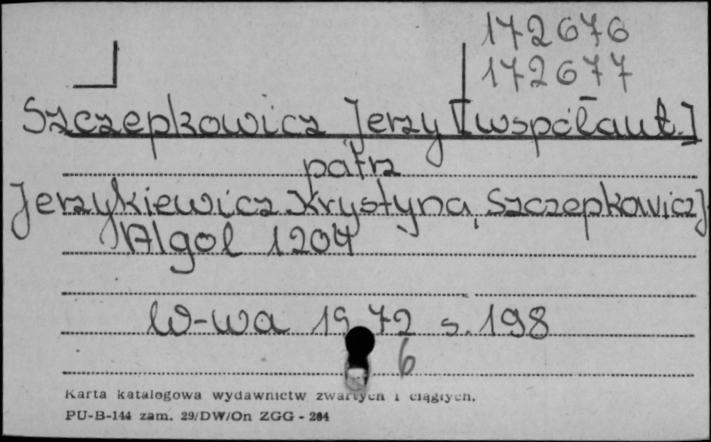 172676
172677
Szczepkowicz Jerzy [współaut.]
patrz
Jerzykiewicz Krystyna, Szczepkowicz J.
Algol 1204
W-wa 1972 s. 198
6
Karta katalogowa wydawnictw zwartych i ciągłych.
PU-B-144 zam. 29/DW/On ZGG - 284